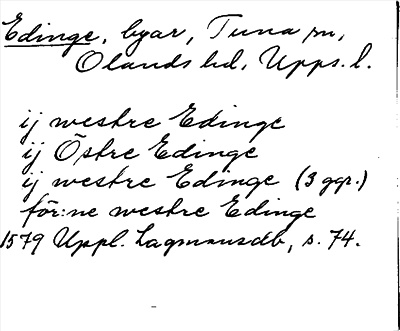 Edinge, byar, Tuna sn,
Olands hd, Upps. l.
ij westre Edinge
ij Östre Edinge
ij westre Edinge (3 ggr.)
för:ne westre Edinge
1579 Uppl. Lagmansdb, s. 74.